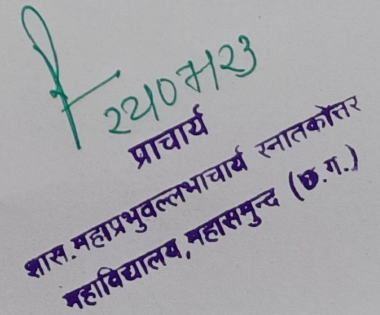 प्राचार्य
शास. महाप्रभुवल्लभाचार्य स्नातकोत्तर
महाविद्यालय, महासमुन्द (छ.ग.)